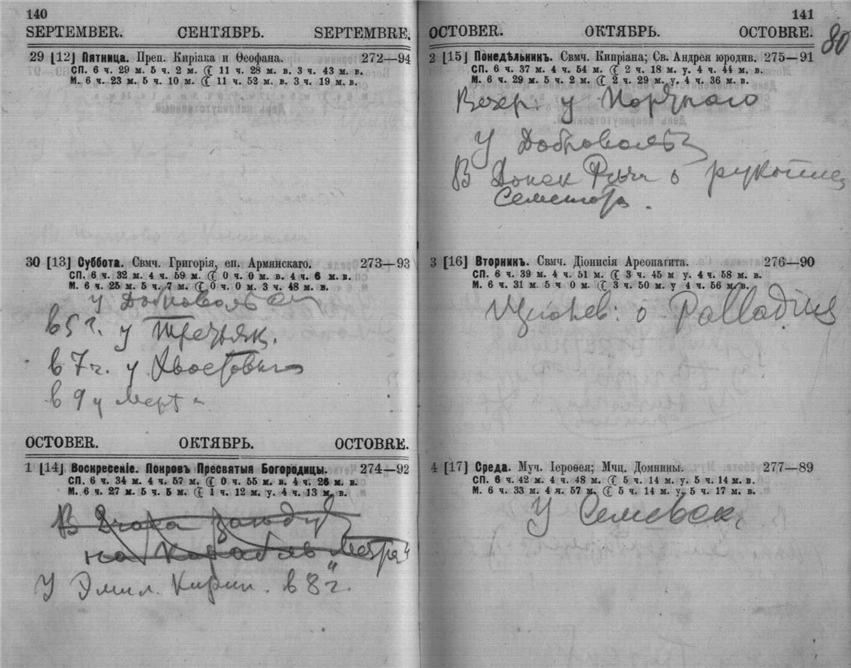 140
SEPTEMBER. СЕНТЯБРЬ. SEPTEMBRE.
29 [12] Пятница. Преп. Киріака и Ѳеофана. 272—94
СП. 6 ч. 29 м. 5 ч. 2 м. 11 ч. 28 м. в. 3 ч. 43 м. в.
М. 6 ч. 23 м. 5 ч. 10 м. 11 ч. 53 м. в. 3 ч. 19 м. в.
30 [13] Суббота. Свмч. Григорія, еп. Армянскаго. 273—93
СП. 6 ч. 32 м. 4 ч. 59 м. 0 ч. 0 м. в. 4 ч. 6 м. в.
М. 6 ч. 25 м. 5 ч. 7 м. 0 ч. 0 м. в. 3 ч. 48 м. в.
у
в 5 ч. у Третьяк.
в 7 ч. у
в 9 у
OCTOBER. ОКТЯБРЬ. OCTOBRE.
1 [14] Воскресеніе. Покровъ Пресвятыя Богородицы. 274—92
СП. 6 ч. 34 м. 4 ч. 57 м. 0 ч. 55 м. в. 4 ч. 26 м. в.
М. 6 ч. 27 м. 5 ч. 5 м. 1 ч. 12 м. у. 4 ч. 13 м. в.
В
на
У Эмил. Кирил. в 8 ч.
141
OCTOBER. ОКТЯБРЬ. OCTOBRE.
80
2 [15] Понедѣльникъ. Свмч. Кипріана; Св. Андрея юродив. 275—91
СП. 6 ч. 37 м. 4 ч. 54 м. 2 ч. 18 м. у. 4 ч. 44 м. в.
М. 6 ч. 29 м. 5 ч. 2 м. 2 ч. 29 м. у. 4 ч. 36 м. в.
Вечер. у
У
В о
3 [16] Вторникъ. Свмч. Діонисія Ареопагита. 276—90
СП. 6 ч. 39 м. 4 ч. 51 м. 3 ч. 45 м у. 4 ч. 58 м. в.
М. 6 ч. 31 м. 5 ч 0 м. 3 ч. 50 м. у 4 ч. 56 м. в.
о Palladius
4 [17] Среда. Муч. Іероѳея; Мчц. Домнины. 277—89
СП. 6 ч. 42 м. 4 ч. 48 м. 5 ч. 14 м. у. 5 ч. 14 м. в.
М. 6 ч. 33 м. 4 ч. 57 м. 5 ч. 14 м. у. 5 ч. 17 м. в.
У Семевск.